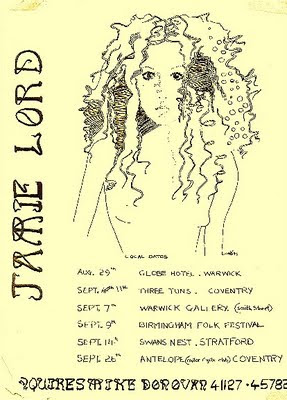 JAMIE LORD
LOCAL DATES
AUG. 29th GLOBE HOTEL. WARWICK
SEPT. 4th 11th THREE TUNS. COVENTRY
SEPT. 7th WARWICK GALLERY. (Smith Street)
SEPT. 9th BIRMINGHAM FOLK FESTIVAL
SEPT. 14th SWANS NEST. STRATFORD
SEPT. 26th ANTELOPE COVENTRY
SQUIRES MIKE DONOVAN 41127 · 4578